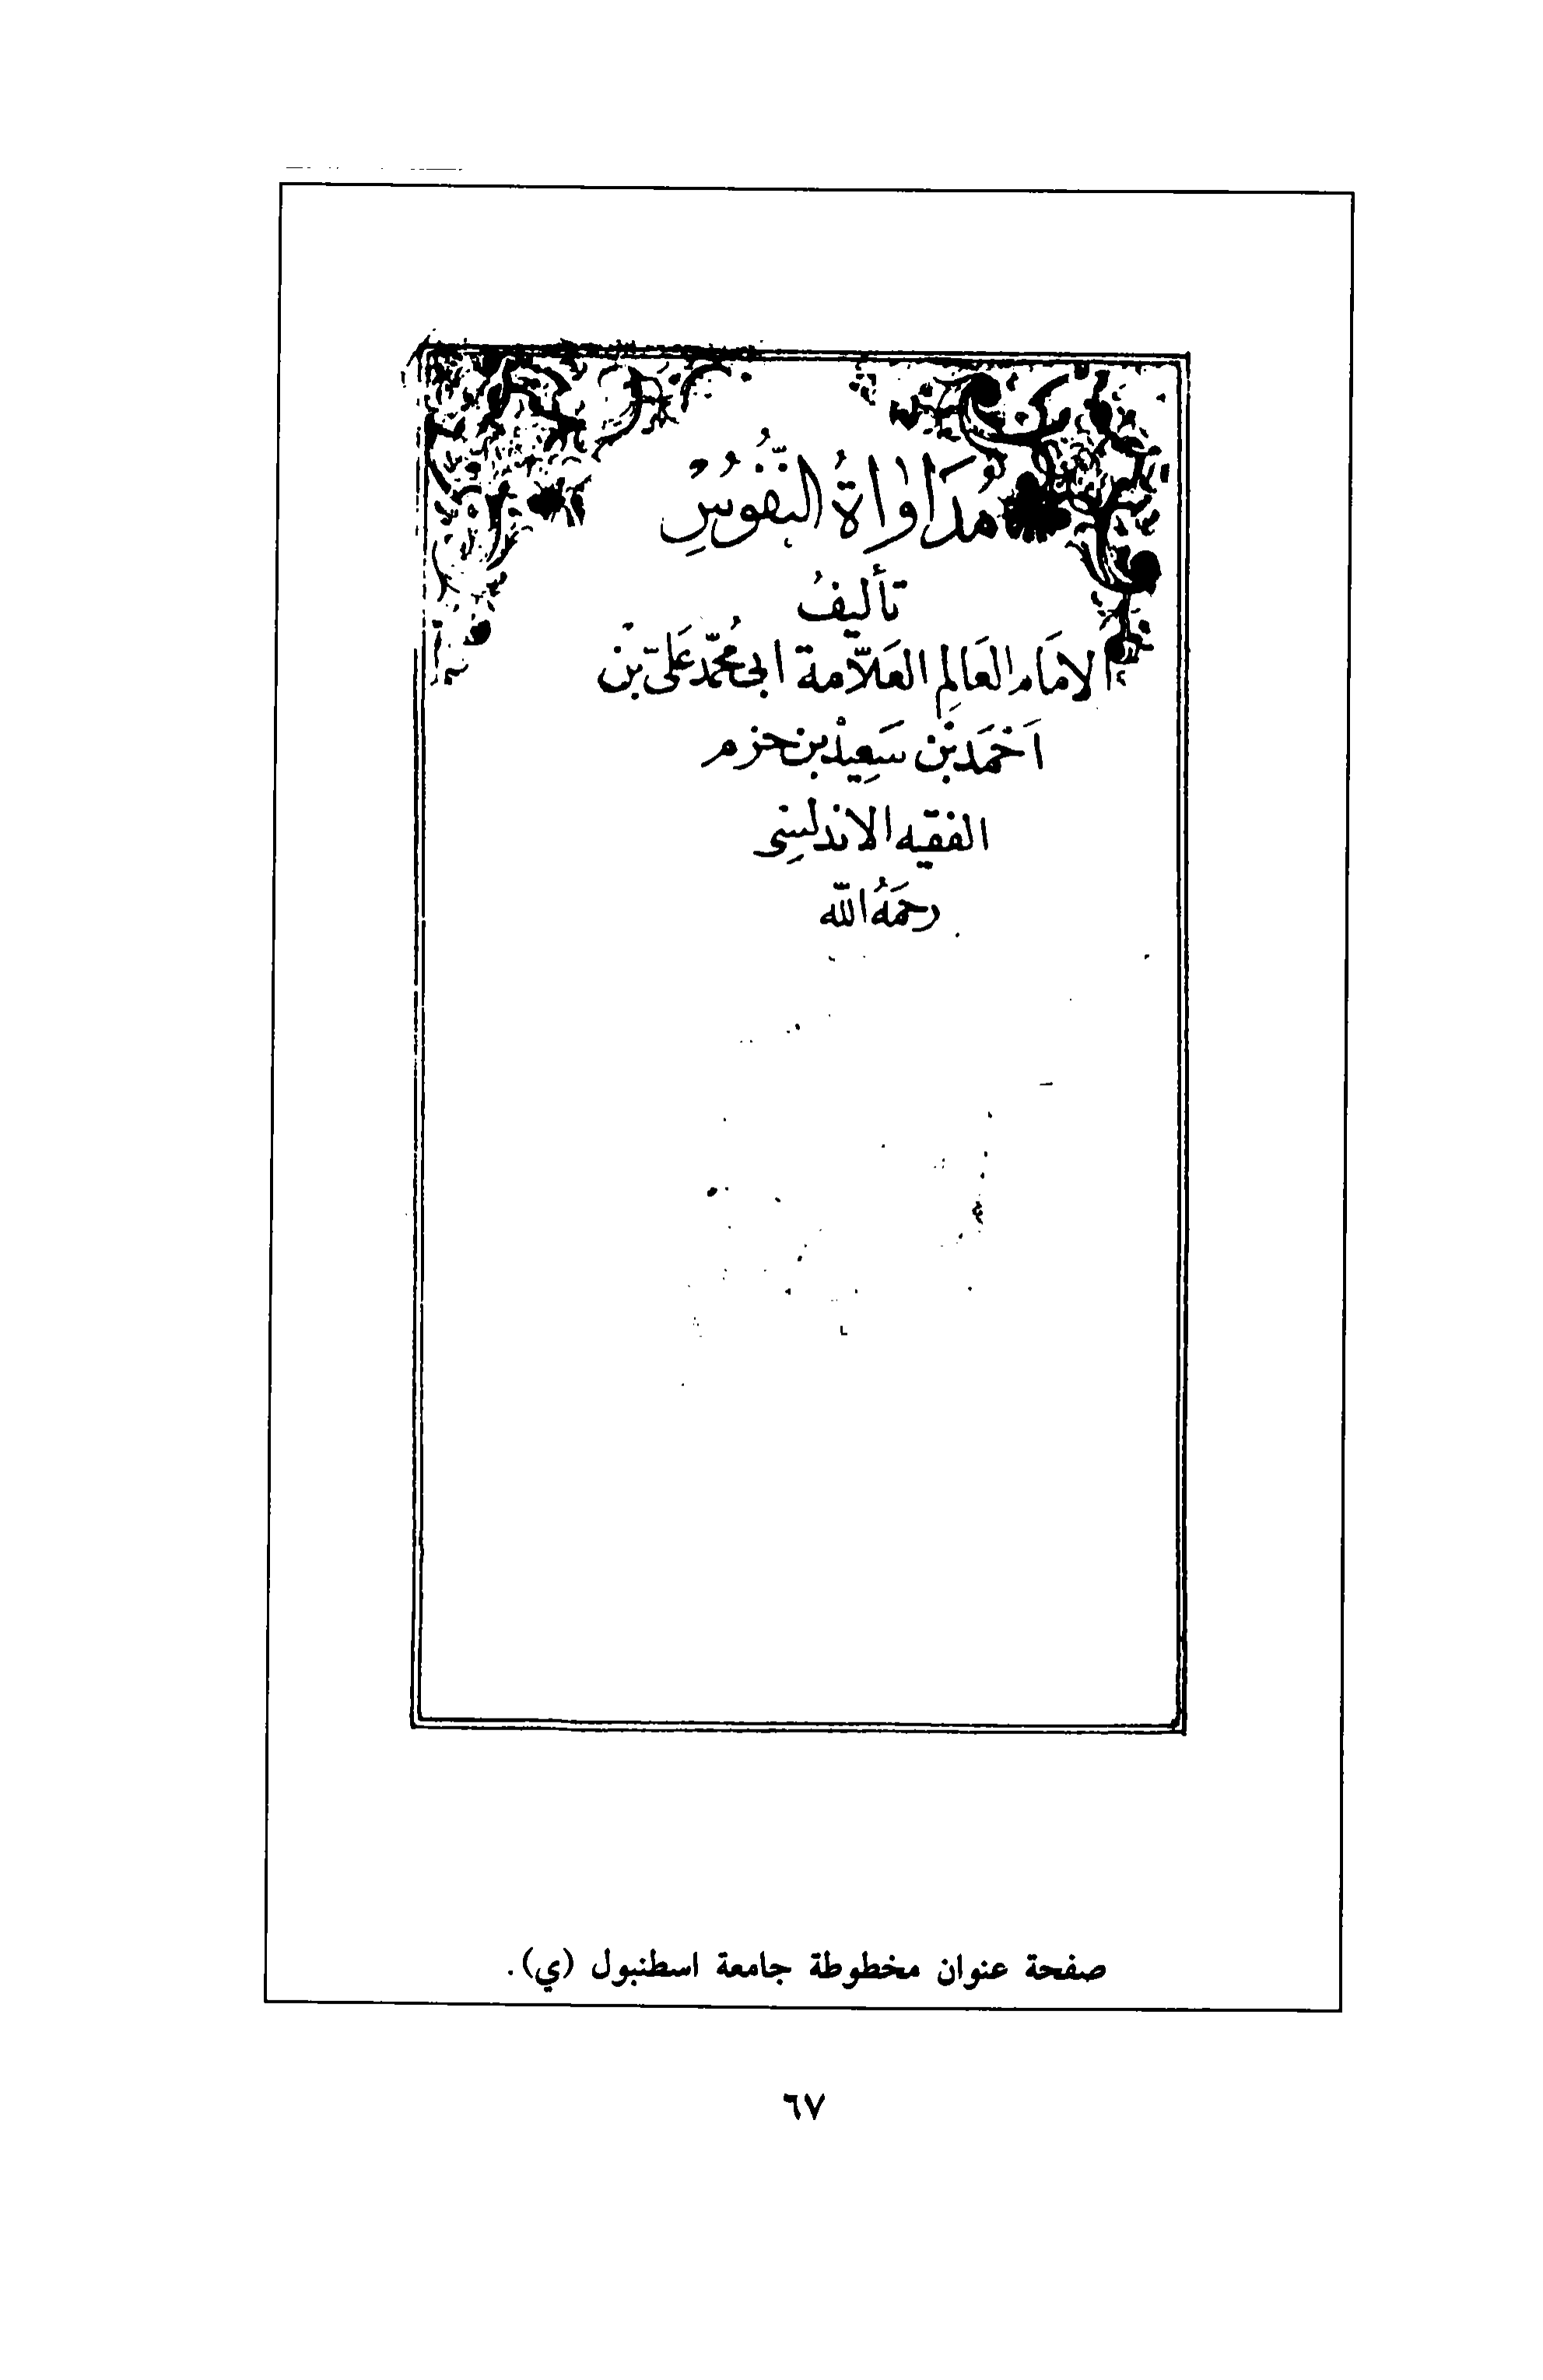 مُدَاوَاةُ النُّفُوسِ
تأليفُ
الامَام العَالِم العَلاَّمة ابى مُحَمَّد عَلىّ بْن
اَحْمَد بْن سَعِيدْ بن حزم
الفقيه الاندلسِى
رحمَهُ اللّٰه
صفحة عنوان مخطوطة جامعة اسطنبول (ي).
٦٧